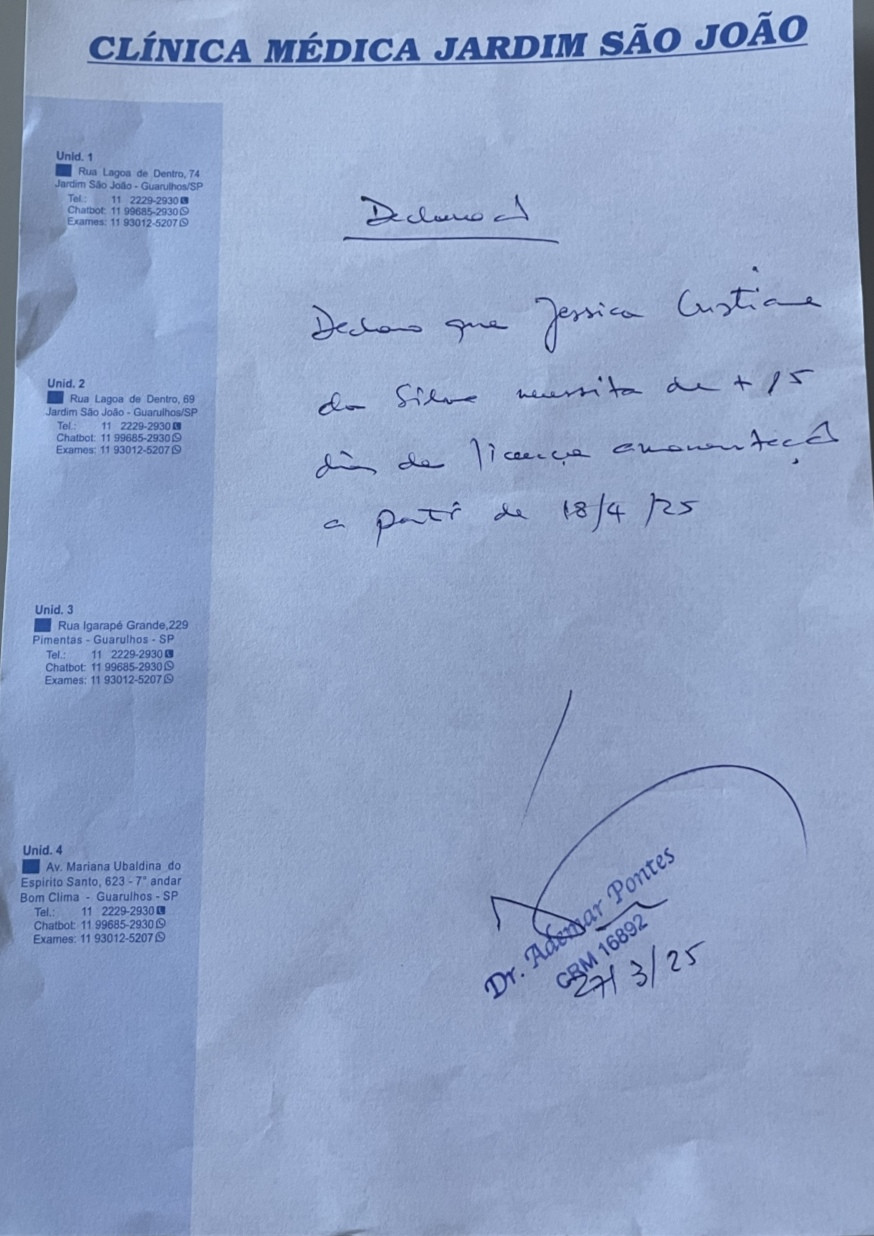 CLÍNICA MÉDICA JARDIM SÃO JOÃO
Unid. 1
Rua Lagoa de Dentro, 74
Jardim São João - Guarulhos/SP
Tel.: 11 2229-2930
Chatbot: 11 99685-2930
Exames: 11 93012-5207
Unid. 2
Rua Lagoa de Dentro, 69
Jardim São João - Guarulhos/SP
Tel.: 11 2229-2930
Chatbot: 11 99685-2930
Exames: 11 93012-5207
Unid. 3
Rua Igarapé Grande,229
Pimentas - Guarulhos - SP
Tel.: 11 2229-2930
Chatbot: 11 99685-2930
Exames: 11 93012-5207
Unid. 4
Av. Mariana Ubaldina do
Espirito Santo, 623 - 7° andar
Bom Clima - Guarulhos - SP
Tel.: 11 2229-2930
Chatbot: 11 99685-2930
Exames: 11 93012-5207
Declaração
Declaro que Jessica Cristiane
da Silva necessita de + 15
dias de licença amamentação
a partir de 18/4/25
Dr. Ademar Pontes
CRM 16892
27/3/25